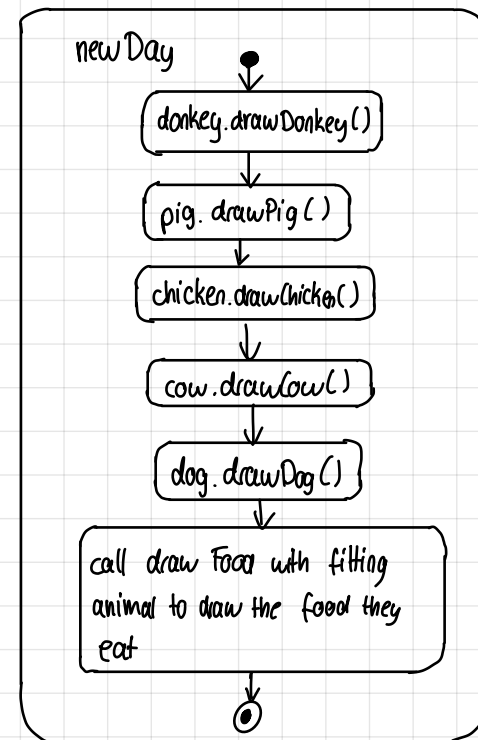 newDay
donkey.drawDonkey()
pig.drawPig()
chicken.drawChicken()
cow.drawCow()
dog.drawDog()
call draw Food with fitting
animal to draw the food they
eat